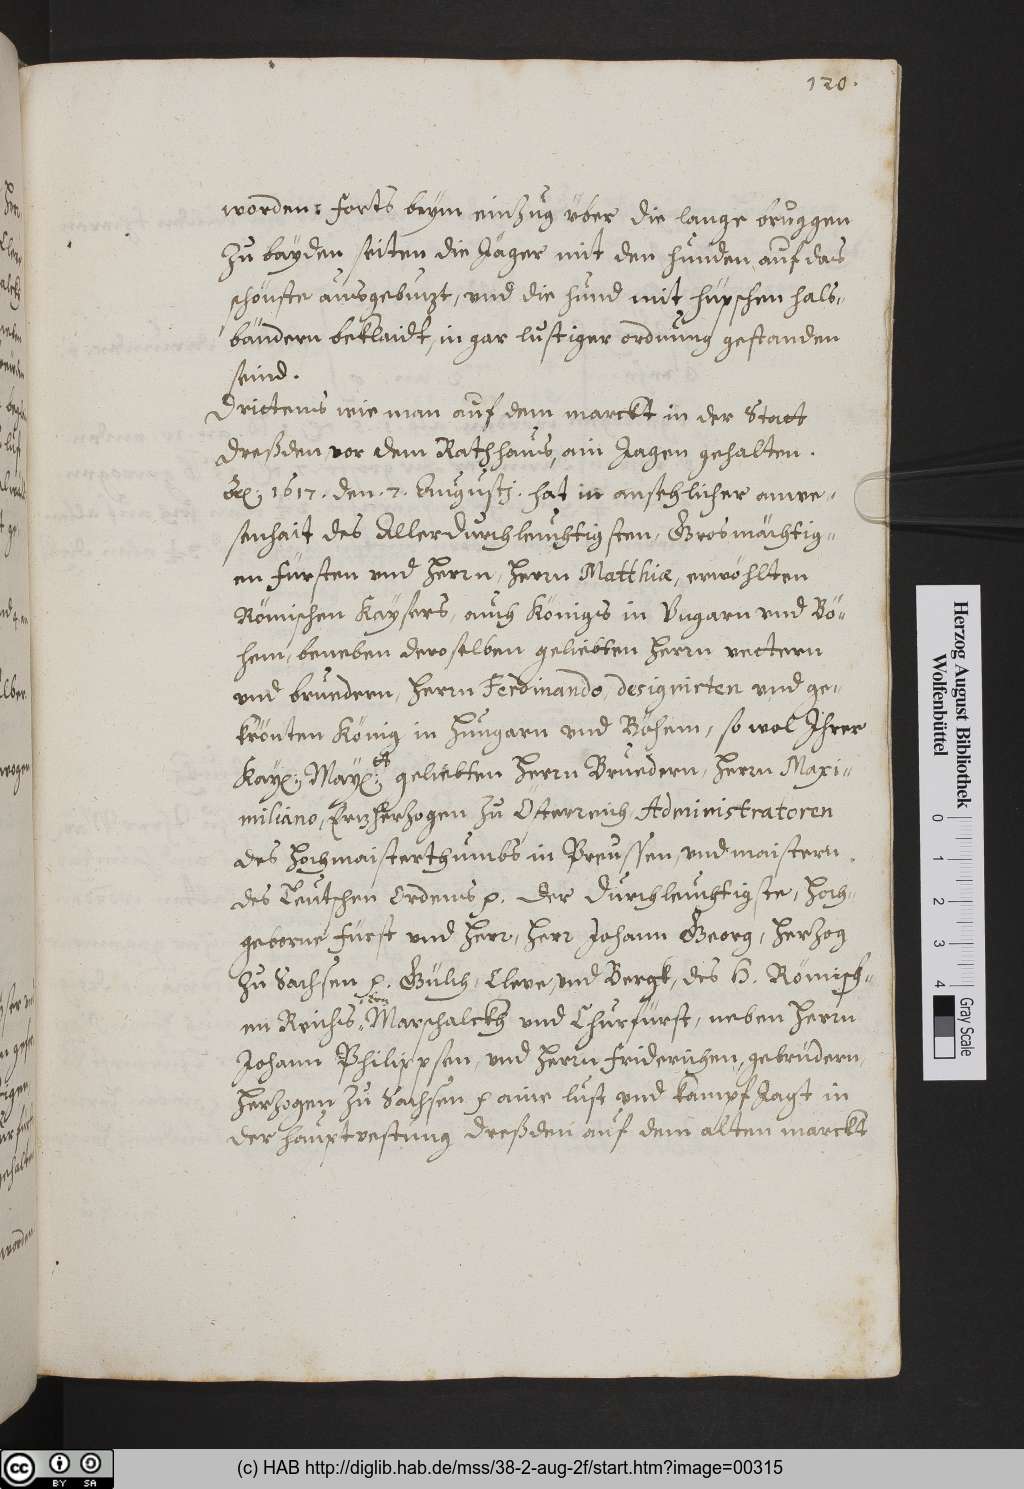 120.
worden: forts beÿm einzug über die lange bruggen
Zu baÿden seiten die Jäger mit den hunden, auf das
schönste ausgebuzt, vnd die hund mit hüpschen hals-
bändern beklaidt, in gar lustiger ordnung gestanden
seind.
Drittens wie man auf dem marckt in der Statt
dreßden vor dem Rathhaus, ain Jagen gehalten.
1617. den. 7. Augustj. hat in ansehlicher anwe-
senhait des Allerdurchleuchtigsten, Grosmächtig-
en fürsten vnd Herrn, Herrn Matthiæ, erwöhlten
Römischen Kaÿsers, auch Königs in Vngarn vnd Bö-
hem, beneben deroselben geliebten Herrn vettern
vnd bruedern, Herrn Ferdinando, designirten vnd ge-
krönten König in Hungarn vnd Böhem, so wol Ihrer
Kaÿ: Maÿ: tt geliebten Herrn Bruedern, Herrn Maxi-
miliano, Erzherzogen zu Österreich, Administratoren
des Hochmaisterthumbs in Preussen, vnd maistern
des Teutschen Ordens. der durchleuchtigste, Hoch-
geborne fürst vnd Herr, Herr Johann Georg, Herzog
zu Sachsen, Gülch, Cleve, vnd Bergk, des H. Römisch-
en Reichs, Marschalckh vnd Churfürst, neben Herrn
Johann Philippsen, vnd Herrn friderichen, gebrüdern,
Herzogen zu Sachsen aine lust vnd kampf Jagt in
der hauptvestung dreßden auf dem alten marckt
Herzog August Bibliothek
Wolfenbüttel
0 1 2 3 4
Gray Scale
cc BY SA
(c) HAB http://diglib.hab.de/mss/38-2-aug-2f/start.htm?image=00315